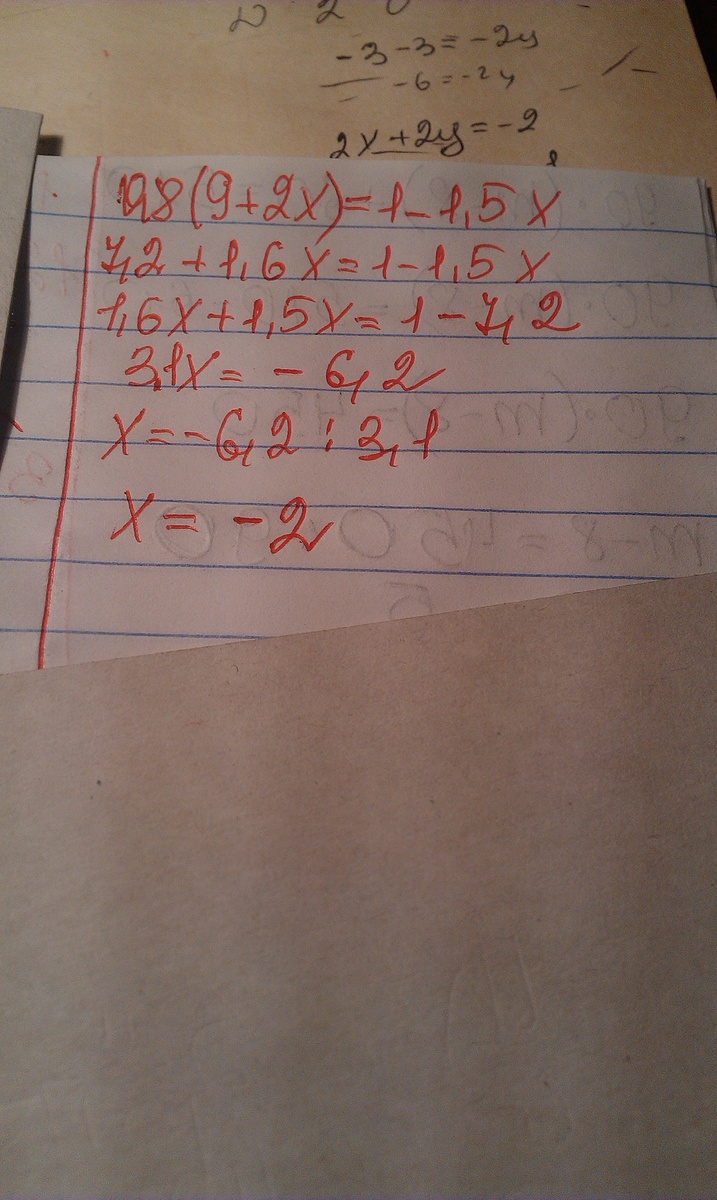 -3-3=-2y
-6=-2y
2x+2y=-2
0,8(9+2x)=1-1,5x
7,2+1,6x=1-1,5x
1,6x+1,5x=1-7,2
3,1x=-6,2
x=-6,2:3,1
x=-2